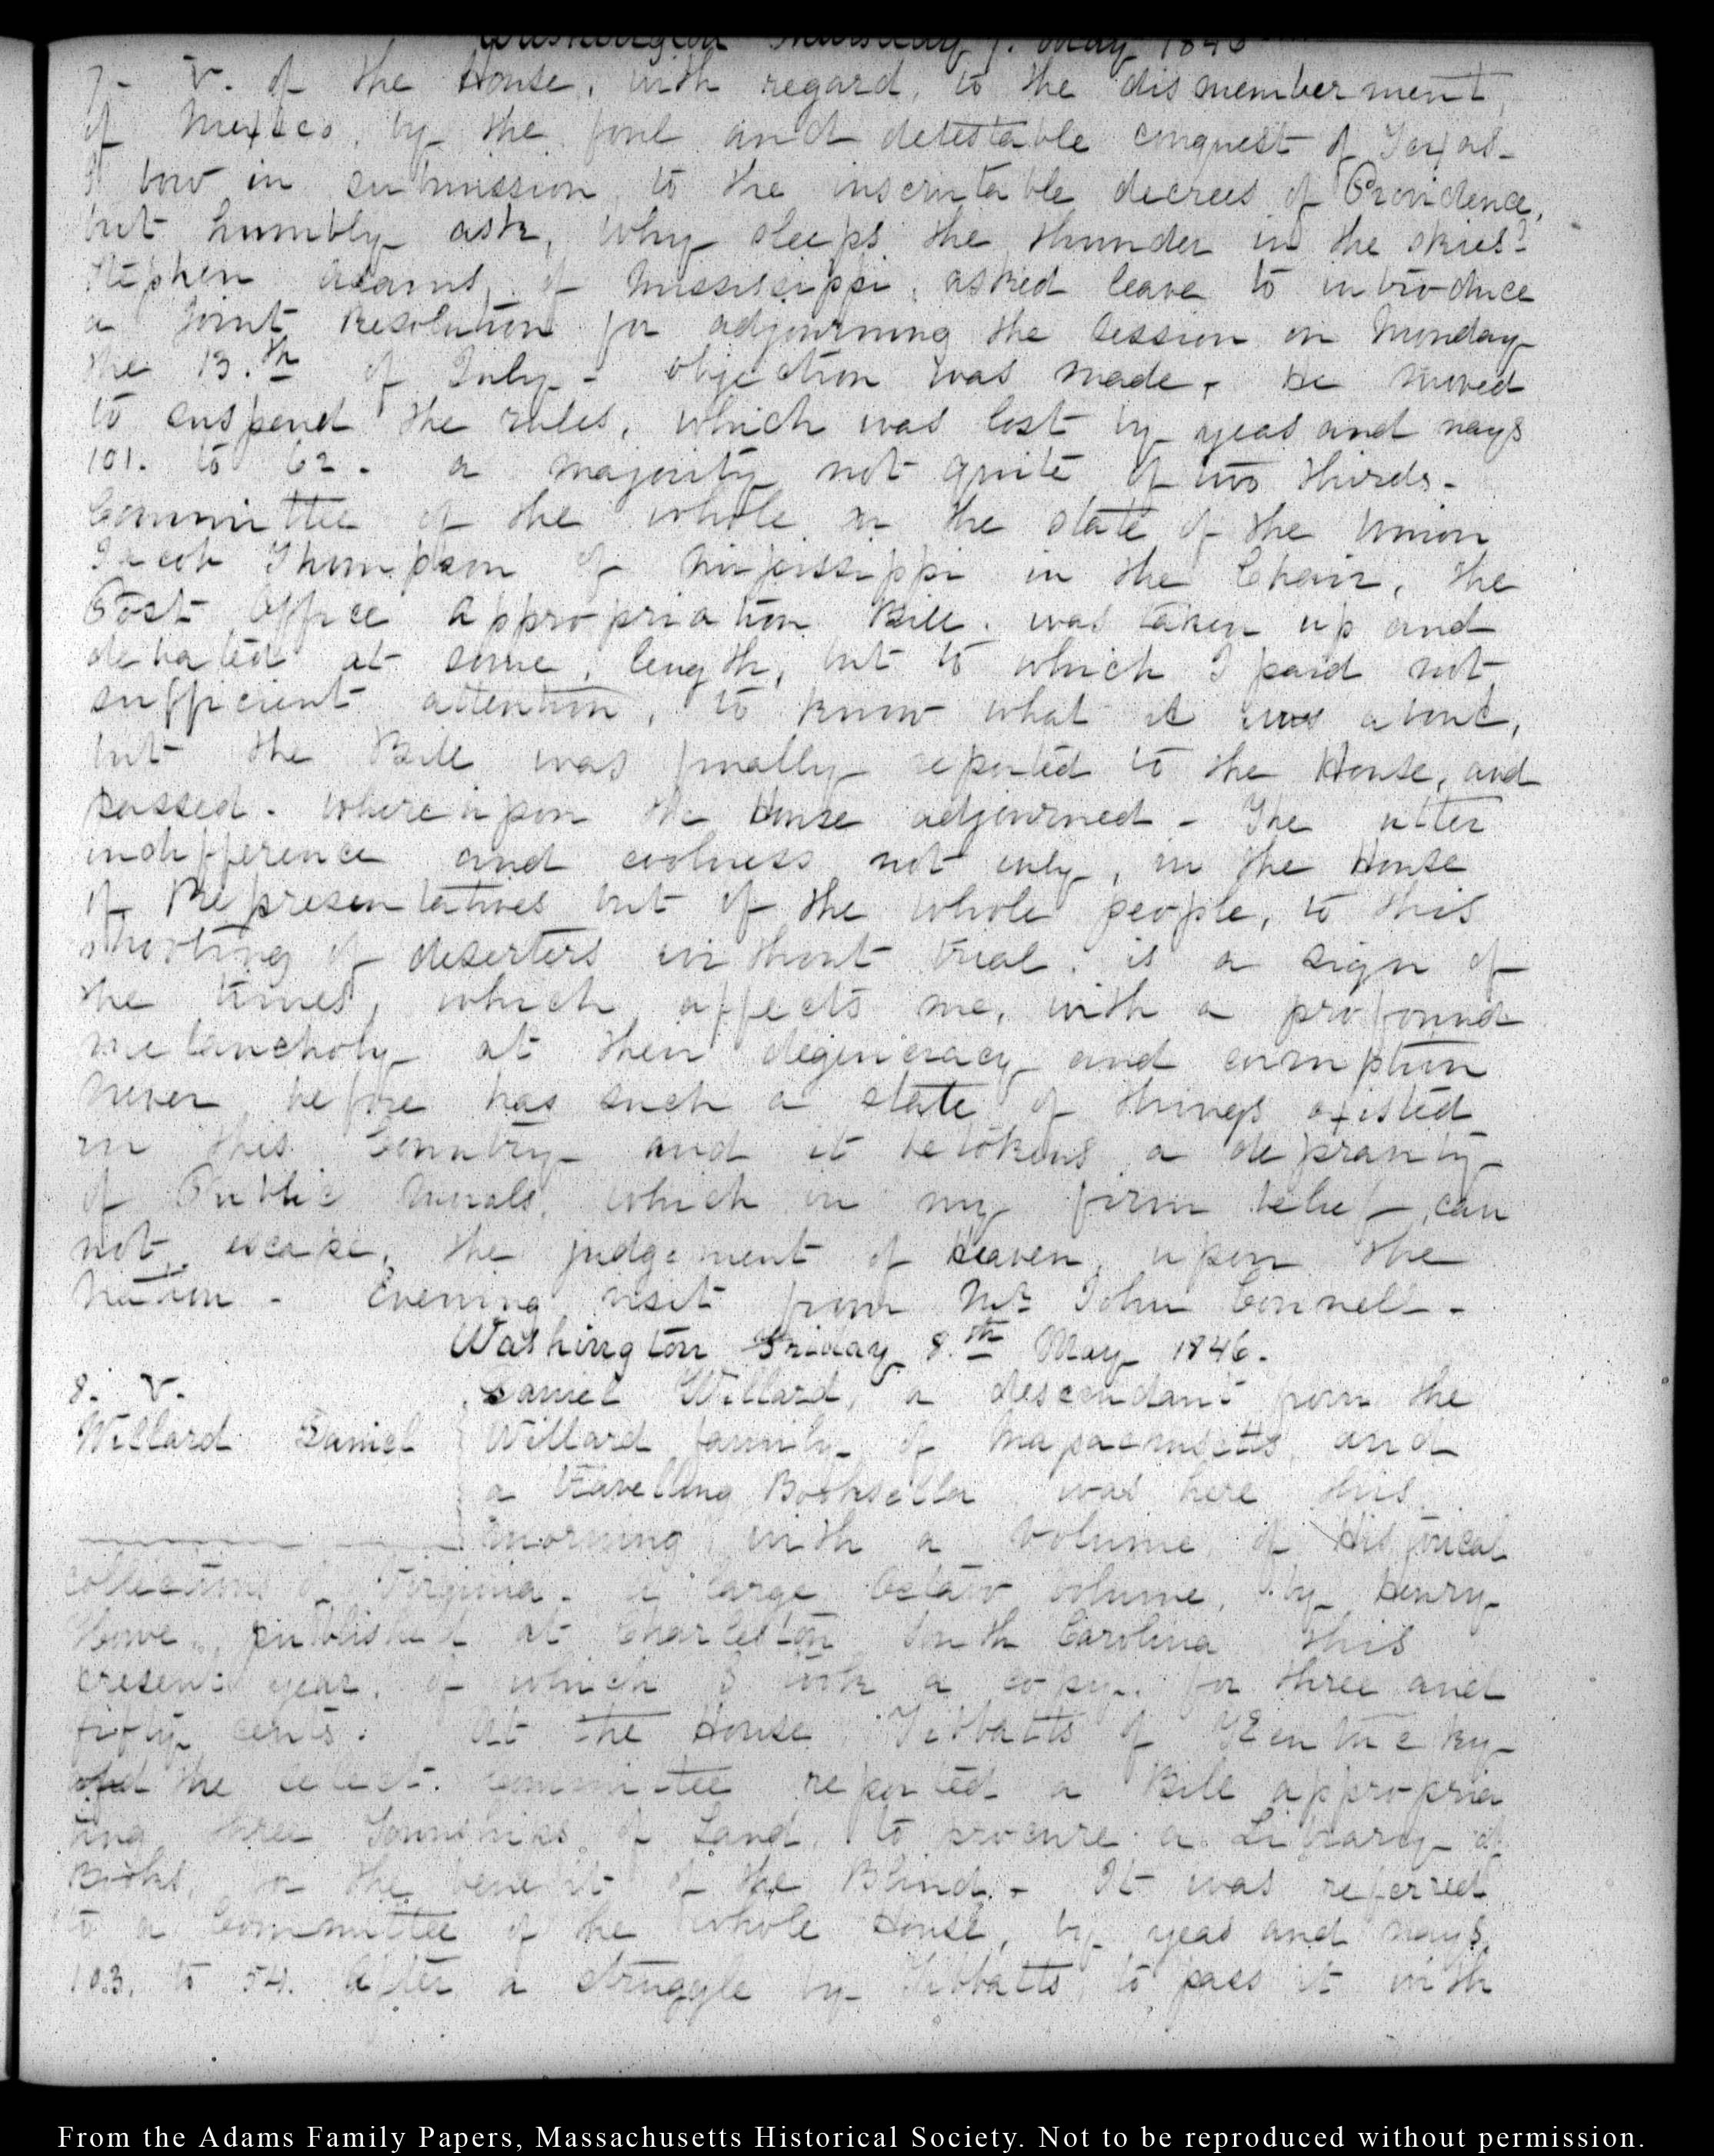 Washington Thursday 7. May 1846
7. V. of the House, with regard, to the dismemberment,
of Mexico, by the foul and detestable conquest of Texas-
I bow in submission to the inscrutable decrees of Providence,
but humbly ask, why sleeps the thunder in the skies?
Stephen Adams, of Mississippi, asked leave to introduce
a Joint Resolution for adjourning the session on Monday
the 13.th of July- objection was made, He moved
to suspend the rules, which was lost by yeas and nays
101. to 62. a majority not quite of two thirds-
Committee of the whole on the state of the Union
Jacob Thompson of Mississippi in the Chair, the
Post Office Appropriation Bill, was taken up and
debated at some, length, but to which I paid not
sufficient attention, to know what it was about,
but the Bill was finally reported to the House, and
passed. whereupon the House adjourned- The utter
indifference and coolness not only, in the House
of Representatives but of the whole people, to this
shooting of deserters without trial, is a sign of
the times, which affects me, with a profound
melancholy at their degeneracy and corruption
never before has such a state of things existed
in this Country and it betokens a depravity
of Public Morals, which in my firm belief, can
not escape, the judgement of Heaven, upon the
Nation- Evening visit from Mr. John Connell-
Washington Friday 8.th May 1846.
8. V. Daniel Willard, a descendant from the
Willard Daniel Willard family of Massachusetts and
a travelling Bookseller was here this
morning with a volume of Historical
collections of Virginia. a large Octavo volume, by Henry
Howe, published at Charleston South Carolina this
present year, of which I took a copy, for three and
fifty cents. At the House Tibbatts of Kentucky
the select. Committee reported a Bill appropria
ting three Townships of Land, to procure a Library of
Books, for the benefit of the Blind.- It was referred
to a Committee of the whole House, by yeas and nays,
103. to 54. after a struggle by Tibbatts, to pass it with
From the Adams Family Papers, Massachusetts Historical Society. Not to be reproduced without permission.